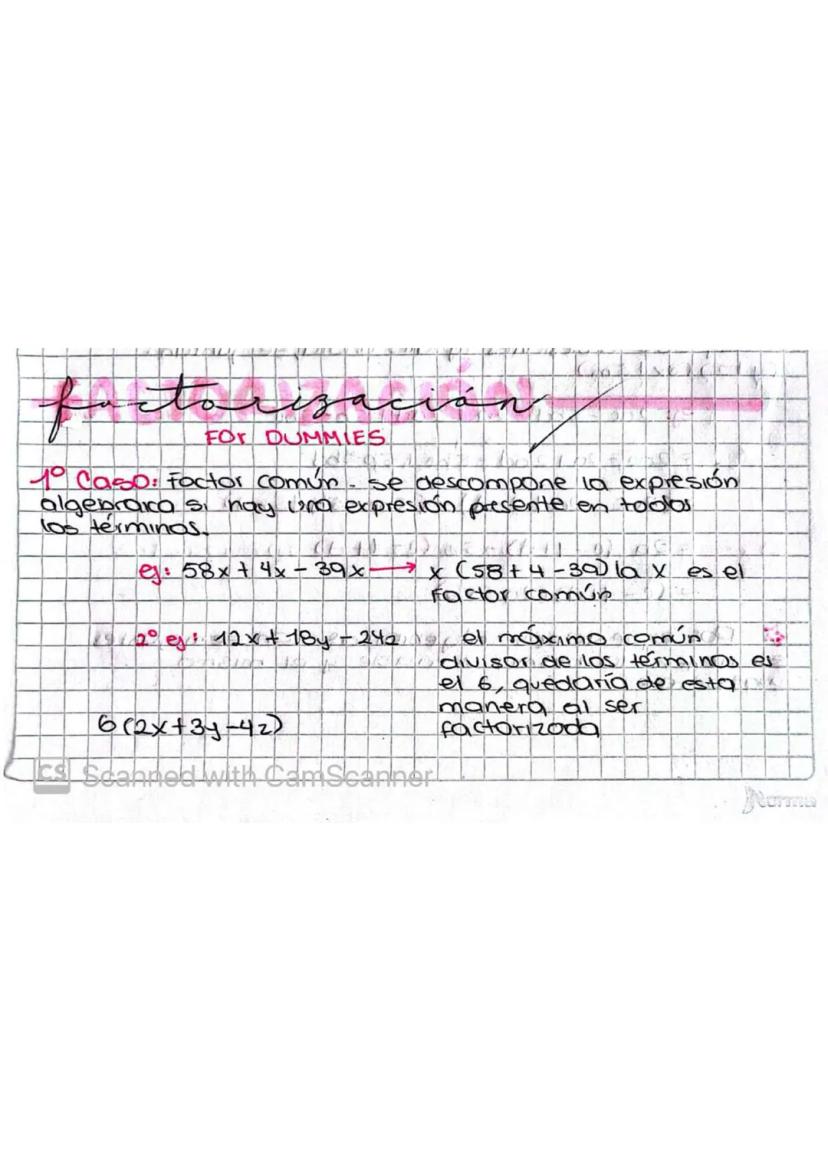 FACTORIZACIÓN
factorización
FOR DUMMIES
1º Caso: Factor común. se descompone la expresión
algebraica si hay una expresión presente en todos
los términos.
ej: 58x + 4x - 39x → x (58 + 4 - 39) la x es el
factor común
2º ej: 12x + 18y - 24z el máximo común
divisor de los términos es
el 6, quedaría de esta
manera al ser
6(2x+3y-4z) factorizada
CS Scanned with CamScanner
Norma